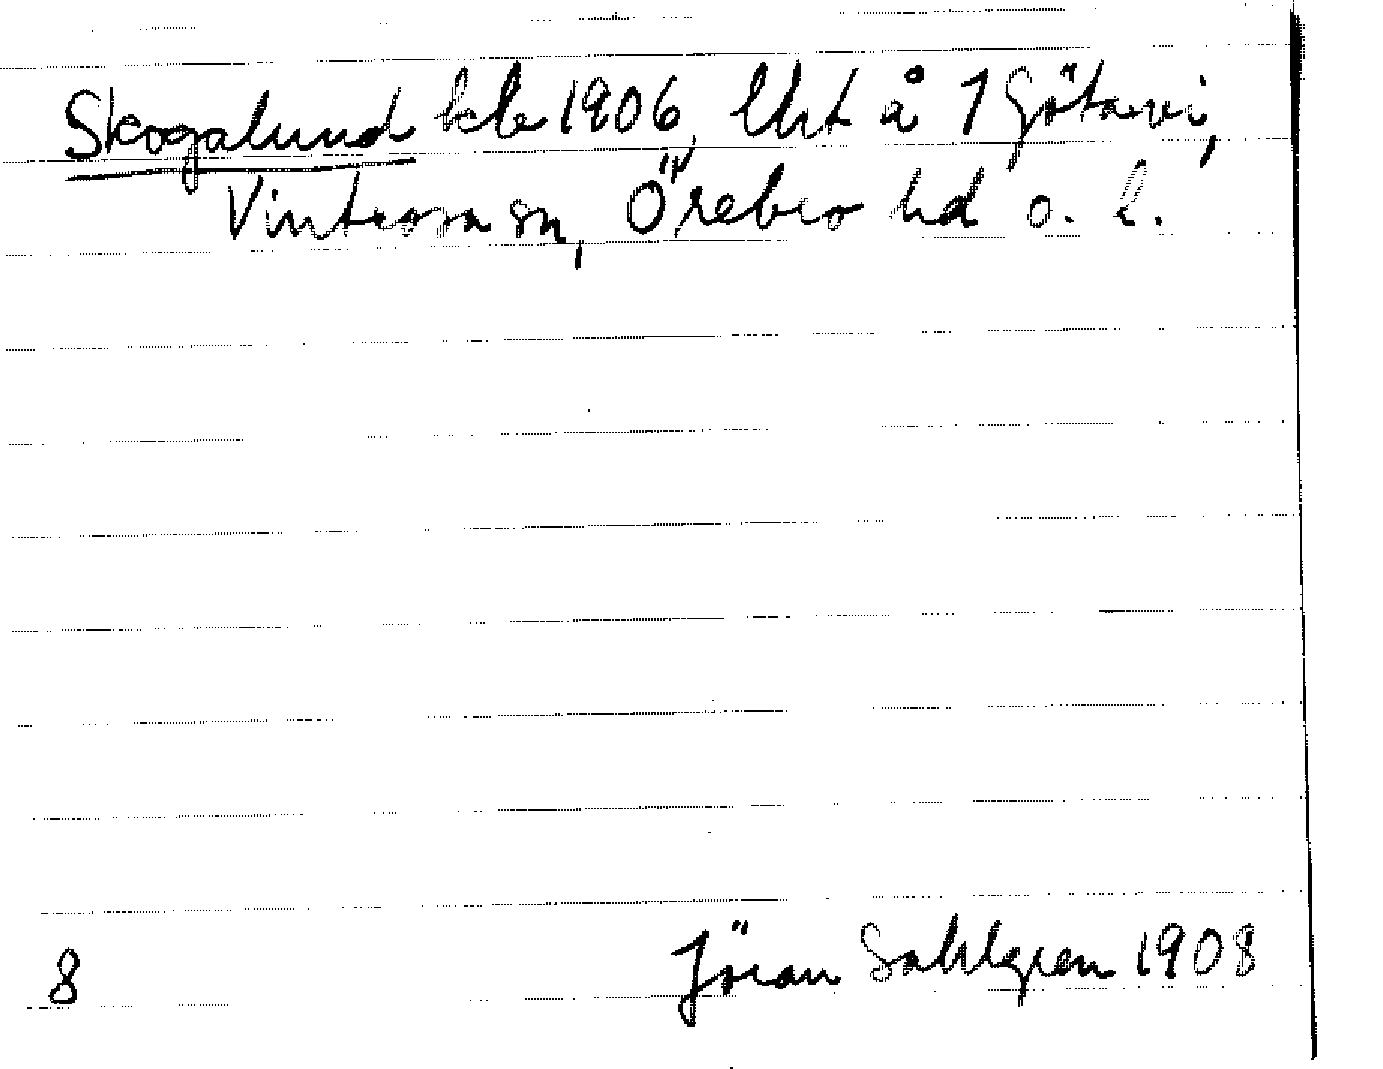 Skogalund kle 1906, Uht å 1 Götavi,
Vintrosa sn, Örebro hd o. l.
8 Jöran Sahlgren 1908